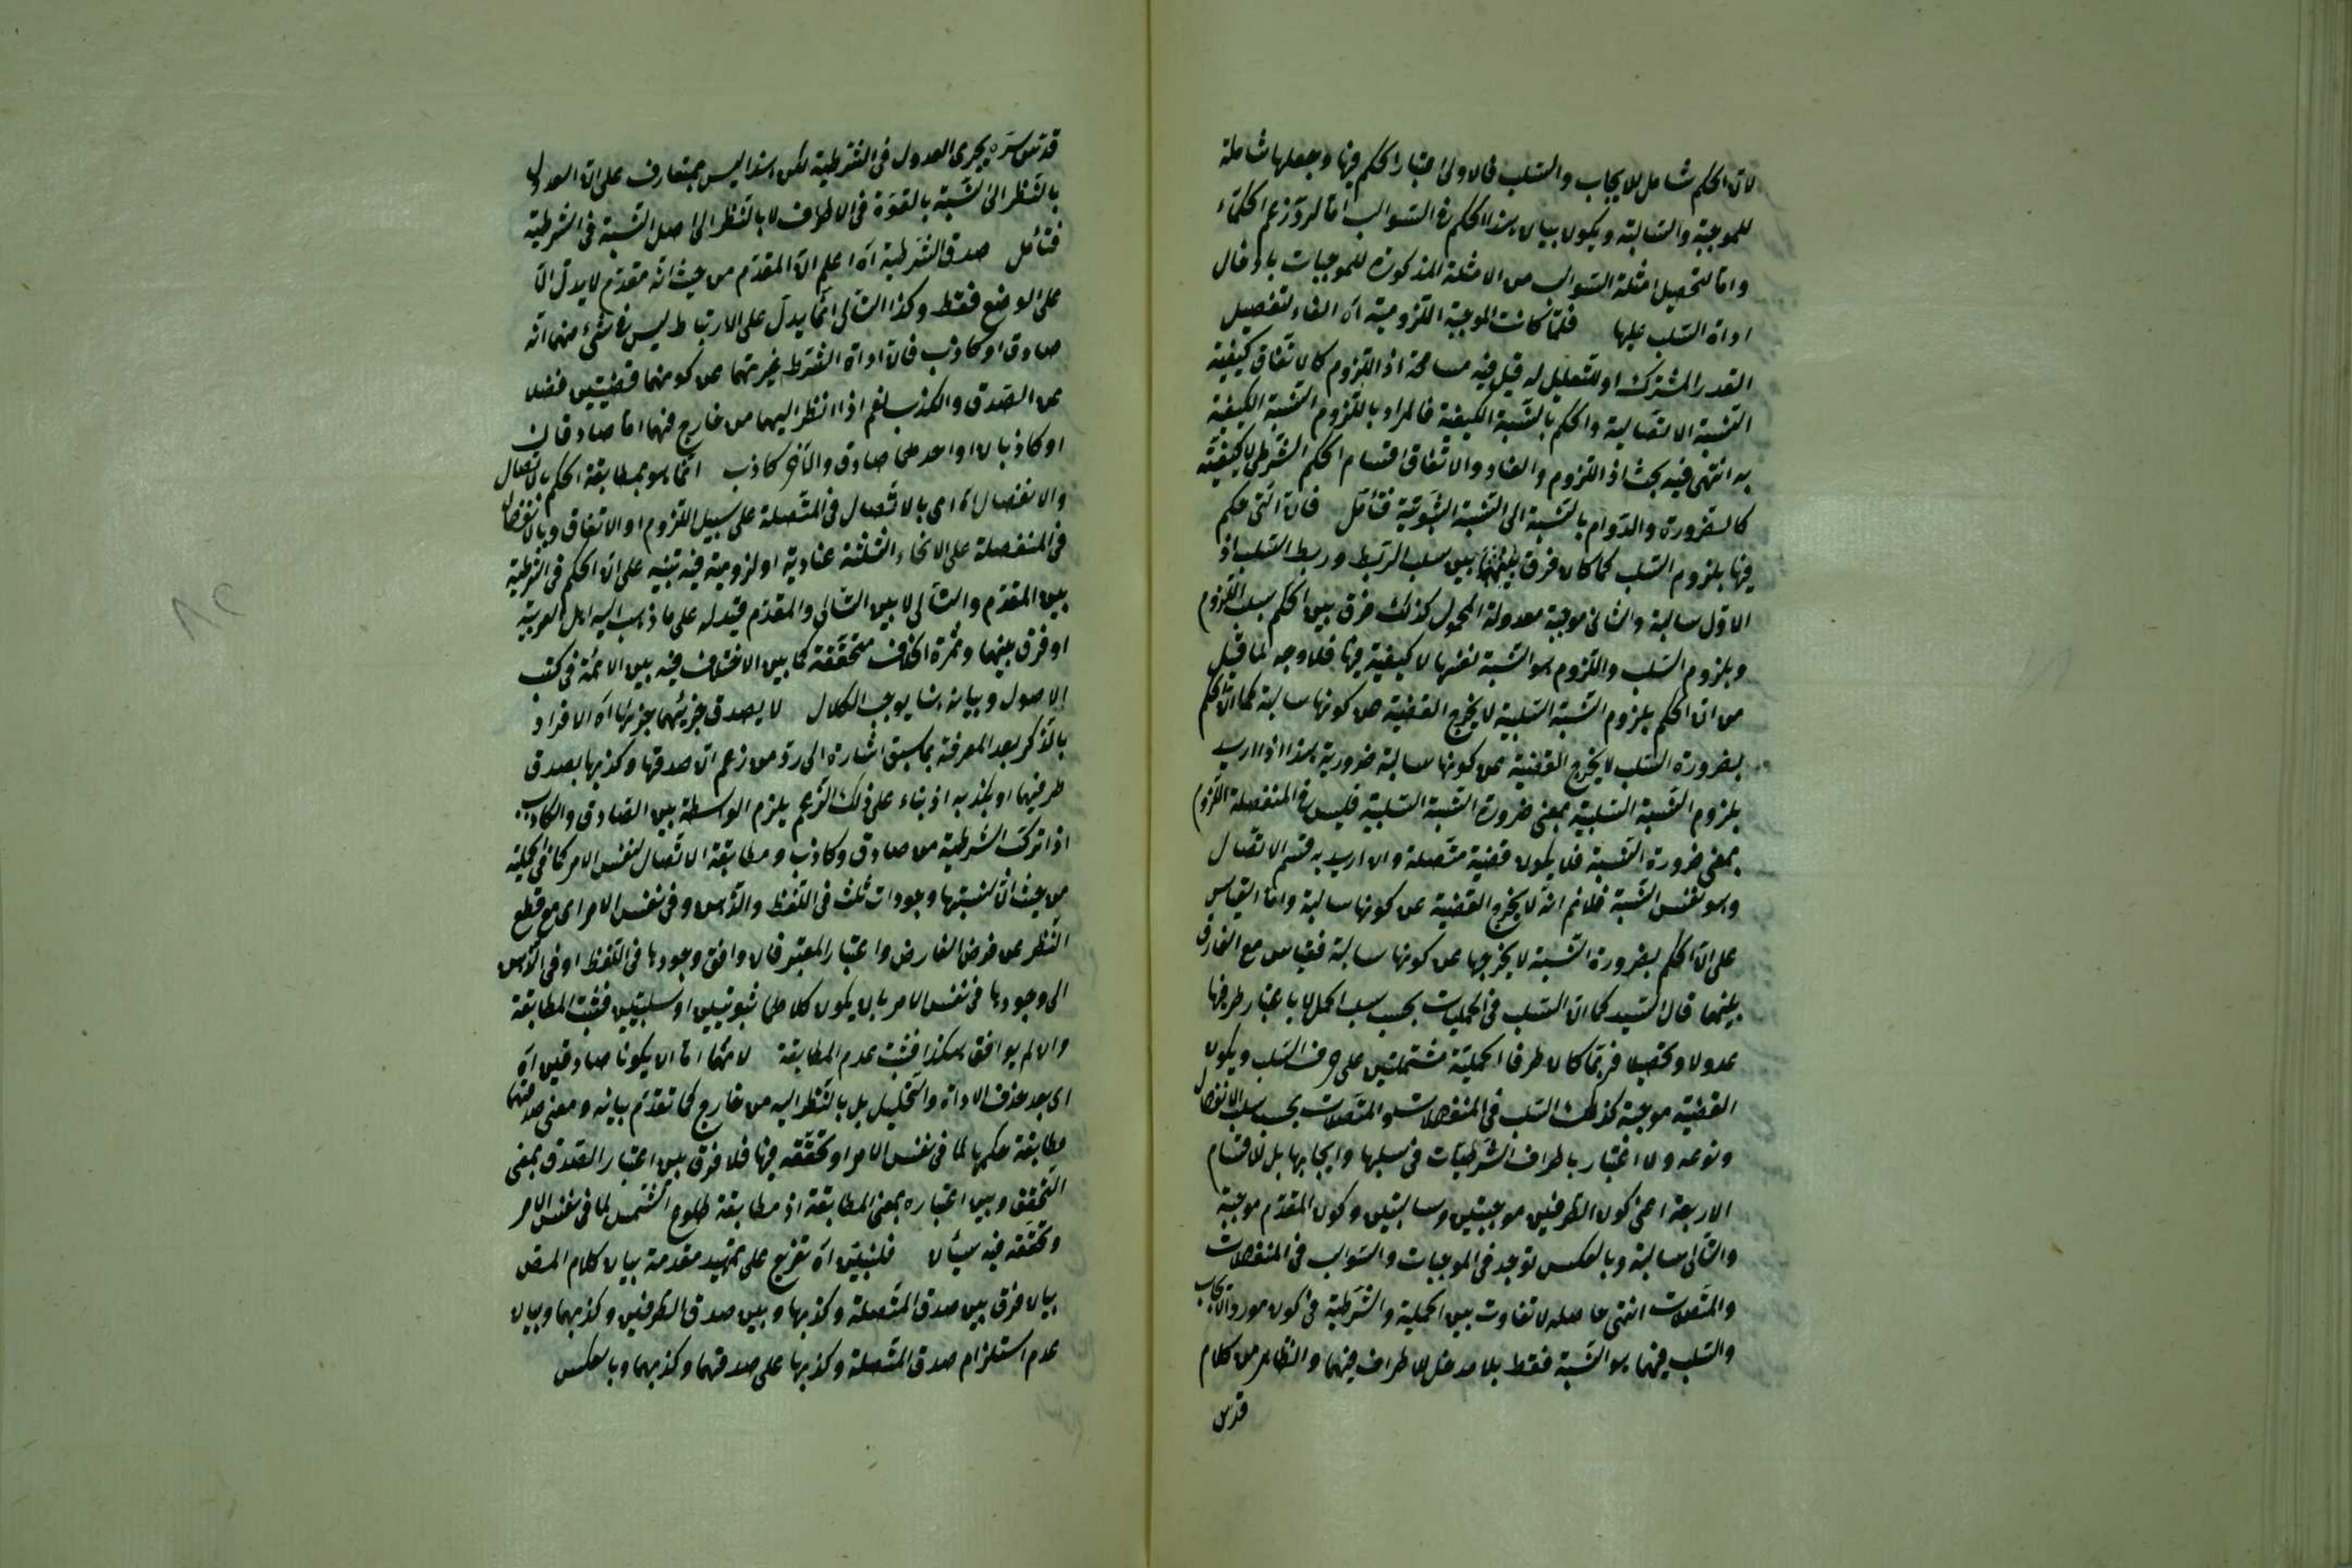 لان الحكم شامل للايجاب والسلب فالاولى اعتبار الحكم فيها وجعلها شاملة
للموجبة والسالبة ويكون بيان هذا الحكم في السوالب اما لرد زعم الحكماء
واما لتحصيل امثلة السوالب من الامثلة المذكورة للموجبات بادخال
اداة السلب عليها فلما كانت الموجبة اللزومية آه الفاء لتفصيل
القدر المشترك او للتعليل له قيل فيه مسامحة اذ اللزوم كالاتفاق كيفية
النسبة الاتصالية والحكم بالنسبة الكيفية فالمراد باللزوم النسبة الكيفية
به انتهى فيه بحث اذ اللزوم والعناد والاتفاق اقسام الحكم الشرطي لا كيفيته
كالضرورة والدوام بالنسبة الى النسبة الثبوتية فتأمل فان التي حكم
فيها بلزوم السلب كما كان فرق بينهما بين سلب الربط وربط السلب اذ
الاول سالبة والثاني موجبة معدولة المحمول كذلك فرق بين الحكم بسلب اللزوم
وبلزوم السلب واللزوم هو النسبة نفسها لا كيفية فيها فلا وجه لما قيل
من ان الحكم بلزوم النسبة السلبية لا يخرج القضية عن كونها سالبة كما ان الحكم
بضرورة السلب لا يخرج القضية عن كونها سالبة ضرورية هذا اذا اريد
بلزوم النسبة السلبية بمعنى ضرورة النسبة السلبية فليس في المنفصلة اللزوم
بمعنى ضرورة النسبة فلا يكون قضية متصلة وان اريد به قسم الاتصال
وهو نفس النسبة فلا نم انه لا يخرج القضية عن كونها سالبة واما القياس
على ان الحكم بضرورة النسبة لا يخرجها عن كونها سالبة فقياس مع الفارق
بينهما قال السيد كما ان السلب في الحمليات بحسب سلب الحمل لا باعتبار طرفيها
عدولا وتحصيلا فربما كان طرفا الحملية مشتملتين على حرف السلب ويكون
القضية موجبة كذلك السلب في المنفصلات والمتصلات بحسب سلب الانفصال
ونوعه ولا اعتبار باطراف الشرطيات في سلبها وايجابها بل الاقسام
الاربعة اعني كون الطرفين موجبتين وسالبتين وكون المقدم موجبة
والتالي سالبة وبالعكس توجد في الموجبات والسوالب في المنفصلات
والمتصلات انتهى حاصله لا تفاوت بين الحملية والشرطية في كون مورد الايجاب
والسلب فيهما هو النسبة فقط بلا مدخل للاطراف فيهما والظاهر من كلام
قدس
قدس سره يجرى العدول في الشرطية لكن هذا ليس بمتعارف على ان العدول
بالنظر الى النسبة بالقوة في الاطراف لا بالنظر الى اصل النسبة في الشرطية
فتأمل صدق الشرطية آه اعلم ان المقدم من حيث انه مقدم لا يدل الا
على الوضع فقط وكذا التالي انما يدل على الارتباط ليس في شئ منهما انه
صادق او كاذب فان اداة الشرط غيرتهما عن كونهما قضيتين فضلا
عن الصدق والكذب نعم اذا نظر اليهما من خارج فهما اما صادقان
او كاذبان او احدهما صادق والآخر كاذب انما هو بمطابقة الحكم بالاتصال
والانفصال آه اى بالاتصال في المتصلة على سبيل اللزوم او الاتفاق وبالانفصال
في المنفصلة على الانحاء الثلثة عنادية او لزومية فيه تنبيه على ان الحكم في الشرطية
بين المقدم والتالي لا بين التالي والمقدم قيد له على ما ذهب اليه اهل العربية
او فرق بينهما وثمرة الخلاف متحققة كما بين الاختلاف فيه بين الائمة في كتب
الاصول وبيانه هنا يوجب الكلال لا يصدق جزئيهما جزئها آه الافراد
بالذكر بعد المعرفة بما سبق اشارة الى رد من زعم ان صدقها وكذبها بصدق
طرفيها او بكذبه اذ بناء على ذلك الزعم يلزم الواسطة بين الصادق والكاذب
اذا تركت الشرطية من صادق وكاذب ومطابقة الاتصال لنفس الامر كما في الحملية
من حيث ان لنسبتها وجودات ثلث في اللفظ والذهن وفي نفس الامر اى مع قطع
النظر عن فرض الفارض واعتبار المعتبر فان وافق وجودها في اللفظ او في الذهن
الى وجودها في نفس الامر بان يكون كلاهما ثبوتيين او سلبيتين فثبت المطابقة
وان لم يوافق هكذا فثبت عدم المطابقة لانهما اما ان يكونا صادقين آه
اى بعد حذف الاداة والتحليل بل بالنظر اليه من خارج كما تقدم بيانه ومعنى صدقهما
مطابقة حكمها لما في نفس الامر او تحققه فيها فلا فرق بين اعتبار الصدق بمعنى
التحقق وبين اعتباره بمعنى المطابقة اذ مطابقة طلوع الشمس لما في نفس الامر
وتحققه فيه سيان فلنبين آه تفريع على تمهيد مقدمة بيان كلام المص
بيان فرق بين صدق المتصلة وكذبها وبين صدق الطرفين وكذبهما وبيان
عدم استلزام صدق المتصلة وكذبها على صدقهما وكذبهما وبالعكس